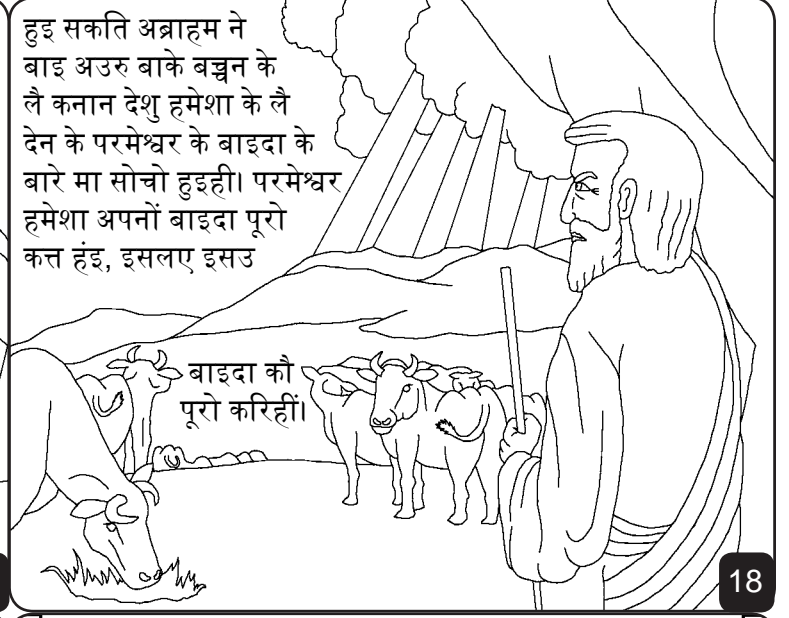 हुइ सकति अब्राहम ने
बाइ अउरु बाके बच्चन के
लै कनान देशु हमेशा के लै
देन के परमेश्वर के बाइदा के
बारे मा सोचो हुइही। परमेश्वर
हमेशा अपनों बाइदा पूरो
कत्त हंइ, इसलए इसउ
बाइदा कौ
पूरो करिहीं।
18